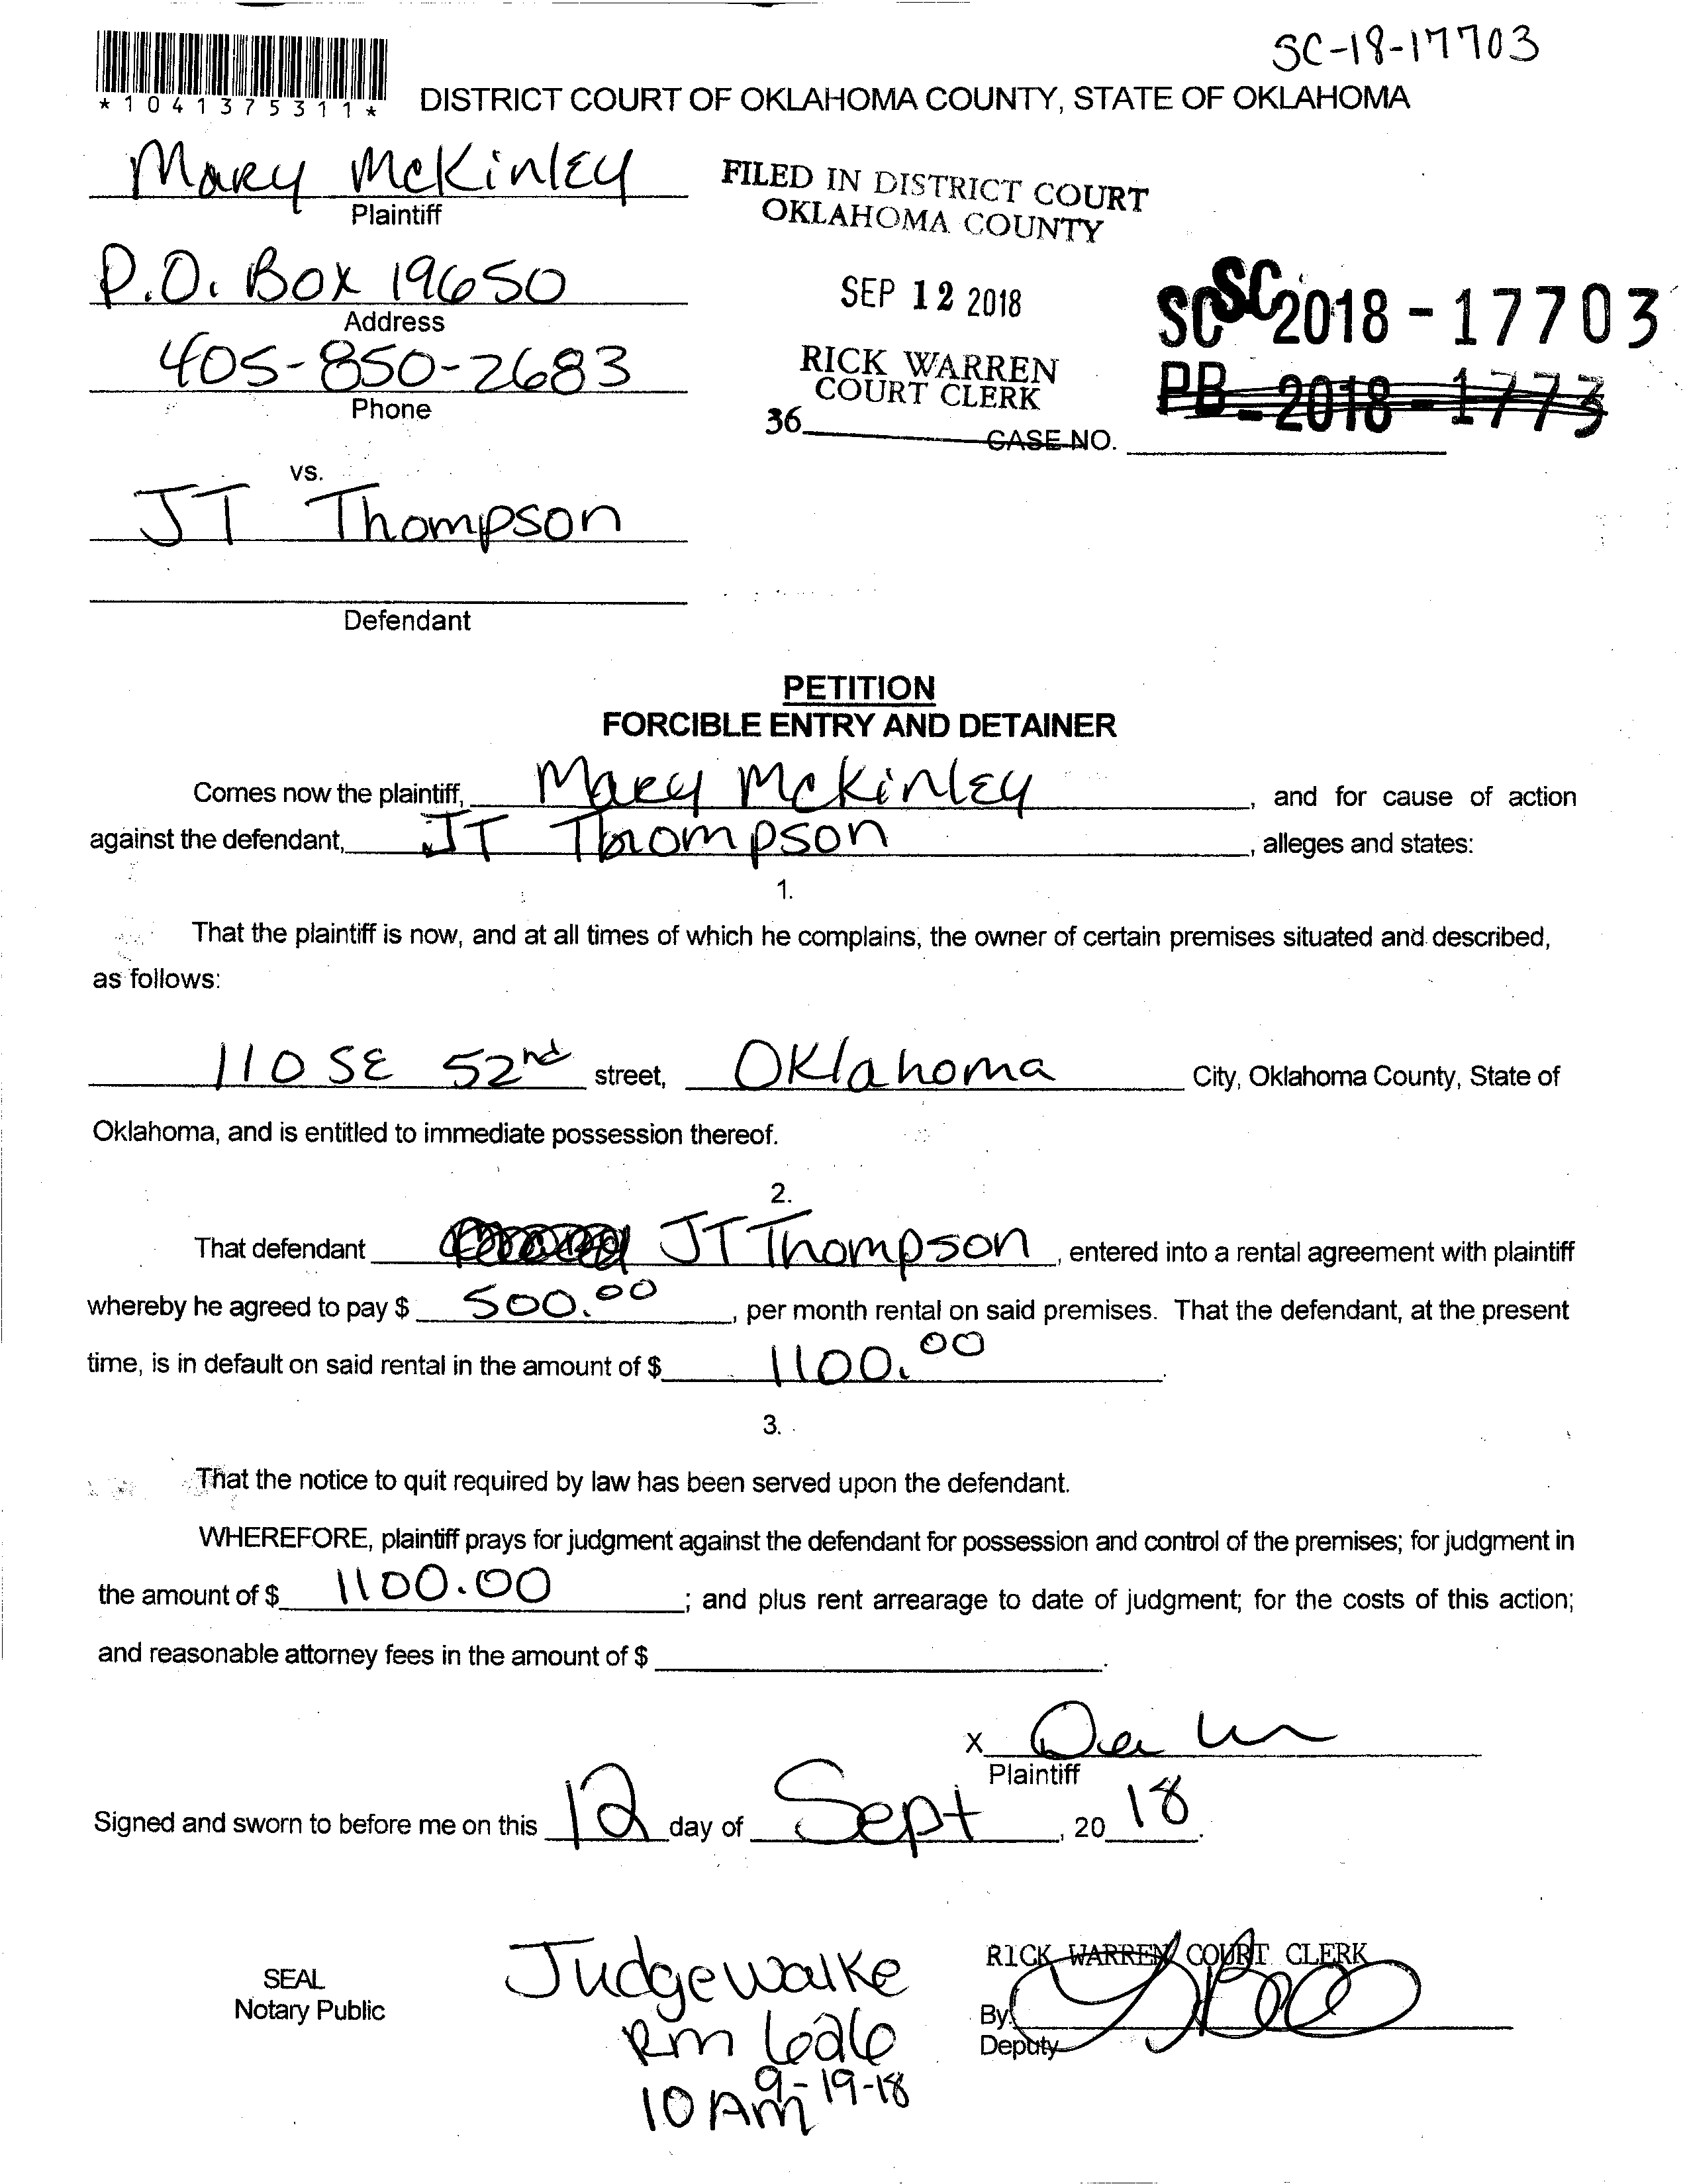 SC-18-17703
*1041375311*
DISTRICT COURT OF OKLAHOMA COUNTY, STATE OF OKLAHOMA
Mary McKinley
Plaintiff
FILED IN DISTRICT COURT
OKLAHOMA COUNTY
P.O. Box 19650
Address
SEP 12 2018
SC SC2018-17703
405-850-2683
Phone
RICK WARREN
COURT CLERK
PB-2018-1773
36
CASE NO.
vs.
JT Thompson
Defendant
PETITION
FORCIBLE ENTRY AND DETAINER
Comes now the plaintiff, Mary McKinley, and for cause of action
against the defendant, JT Thompson, alleges and states:
1.
That the plaintiff is now, and at all times of which he complains, the owner of certain premises situated and described,
as follows:
110 SE 52nd street, Oklahoma City, Oklahoma County, State of
Oklahoma, and is entitled to immediate possession thereof.
2.
That defendant JT Thompson, entered into a rental agreement with plaintiff
whereby he agreed to pay $ 500.00, per month rental on said premises. That the defendant, at the present
time, is in default on said rental in the amount of $ 1100.00.
3.
That the notice to quit required by law has been served upon the defendant.
WHEREFORE, plaintiff prays for judgment against the defendant for possession and control of the premises; for judgment in
the amount of $ 1100.00; and plus rent arrearage to date of judgment; for the costs of this action;
and reasonable attorney fees in the amount of $ .
X
Plaintiff
Signed and sworn to before me on this 12 day of Sept, 20 18.
SEAL
Notary Public
Judge Walke
Rm 626
10 AM 9-19-18
RICK WARREN COURT CLERK
By:
Deputy